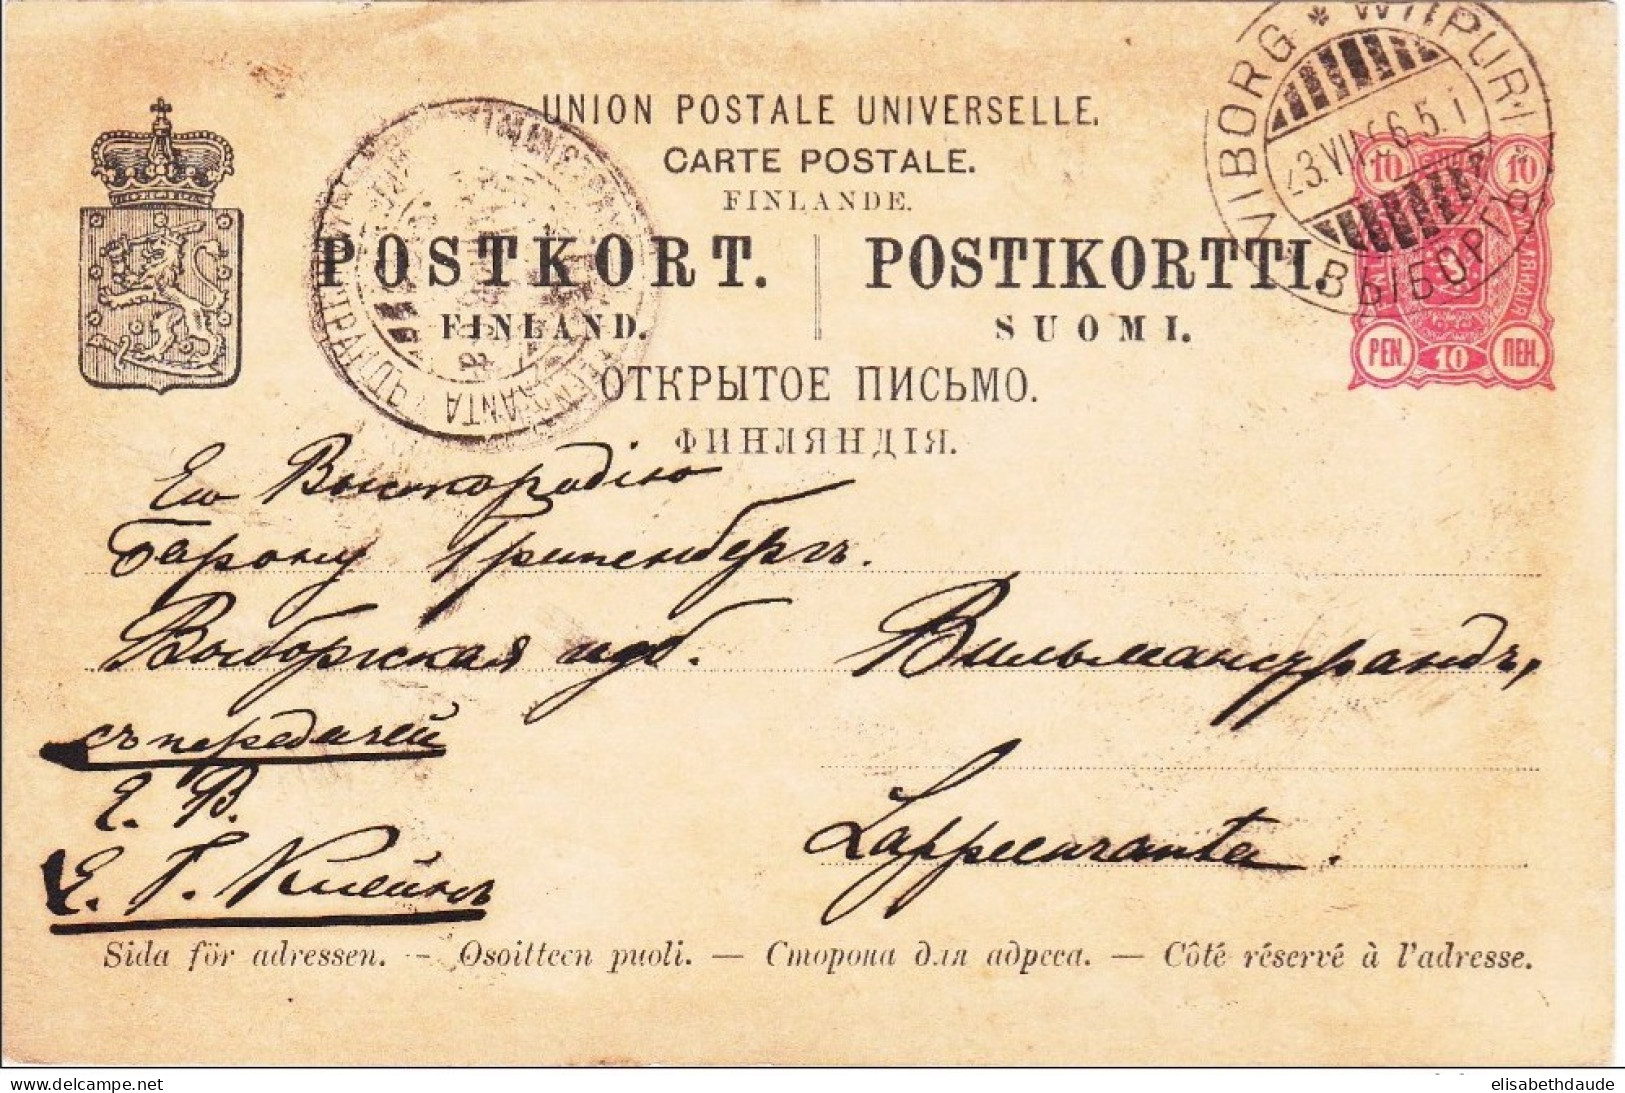 UNION POSTALE UNIVERSELLE.
CARTE POSTALE.
FINLANDE.
POSTKORT. POSTIKORTTI.
FINLAND. SUOMI.
ОТКРЫТОЕ ПИСЬМО.
ФИНЛЯНДІЯ.
VIBORG * WIIPURI
ВЫБОРГЪ
10 10
PEN. 10 ПЕН.
Его Высокородію
Барону Грипенбергъ.
Выборгская губ. Вильманстрандъ,
съ передачей
Е. В. Lappeenranta.
Е. Г. Клейнъ
Sida för adressen. — Osoitteen puoli. — Сторона для адреса. — Côté réservé à l'adresse.
elisabethdaude